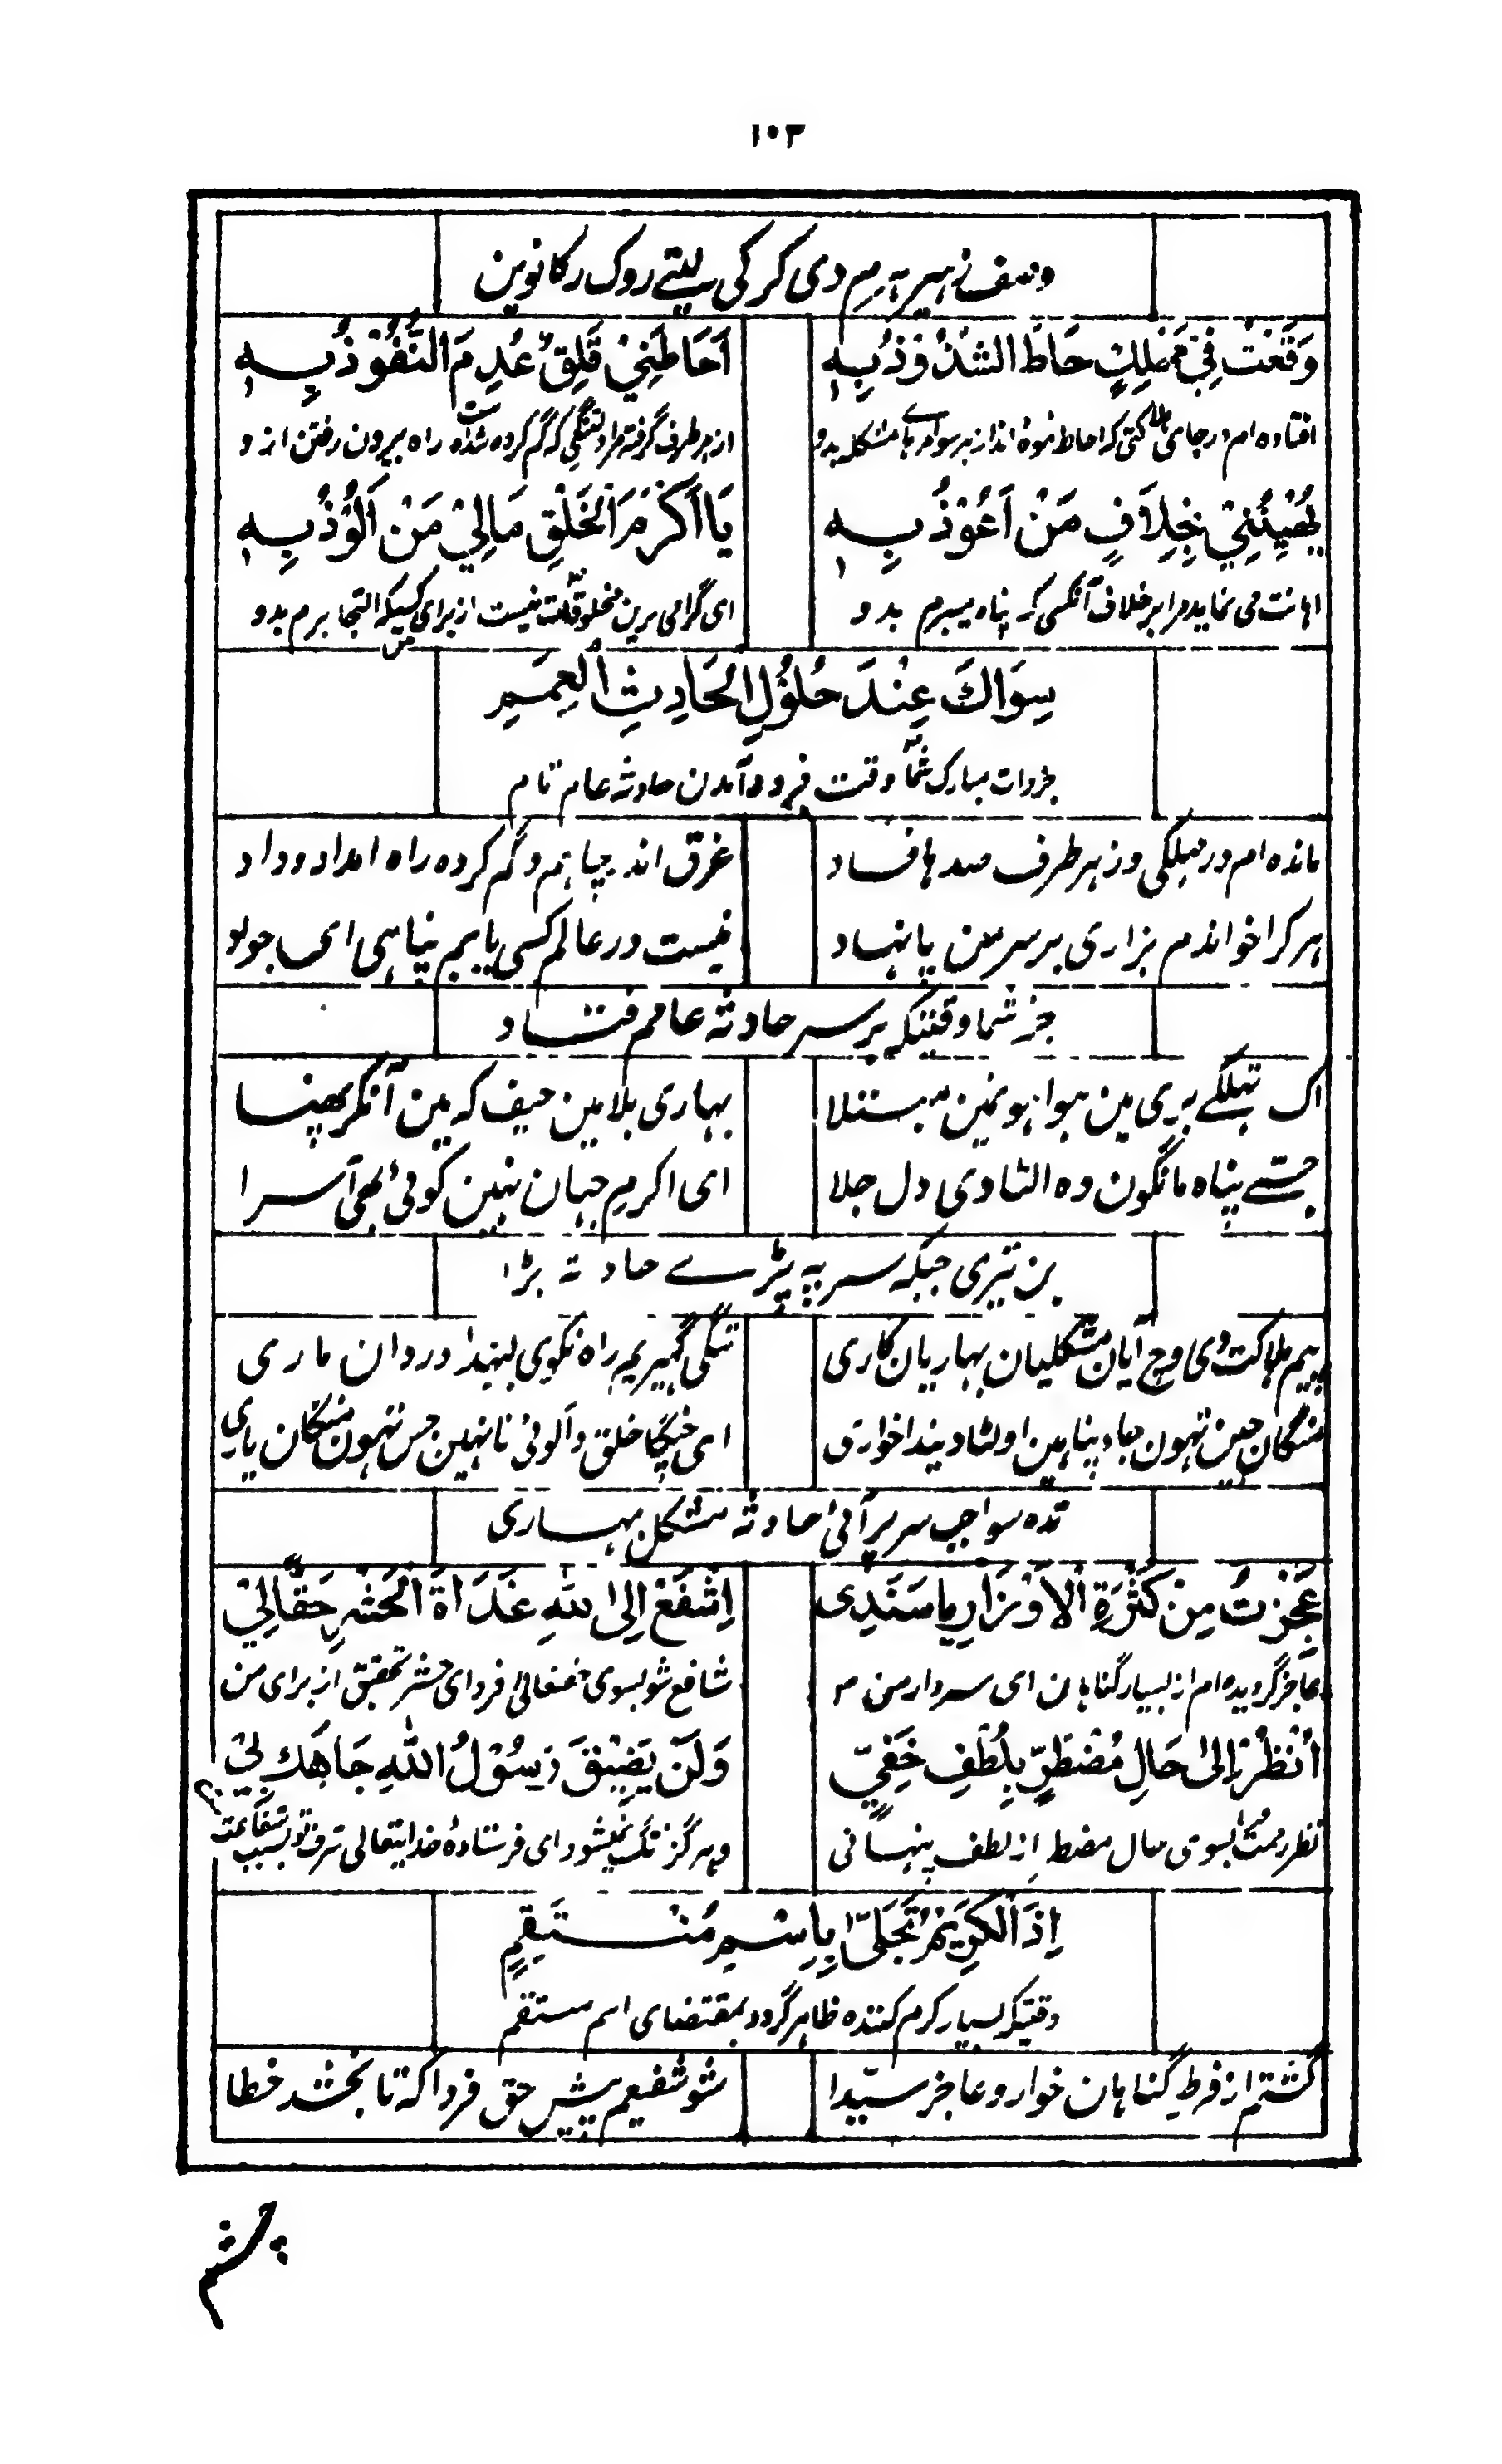 ۱۰۳
وصف زہیر ہرم دی کر کی لیتے روک رکانوین
وَقَعْتُ فِيْ مَهْلِكٍ حَاطَ الشُّذُوْذُ بِهٖ
اَحَاطَنِيْ قَلِقٌ عُدِمَ النُّفُوْذُ بِهٖ
افتاده ام در جای ہلاکتی که احاطه نموده اند از ہر سو امرہای مشکله بدو
از ہر طرف گرفته مرا دلتنگی که گم کرده شده است راه بیرون رفتن از و
يُهِيْنُنِيْ بِخِلَافٍ مَنْ اَعُوْذُ بِهٖ
يَا اَكْرَمَ الْخَلْقِ مَالِيْ مَنْ اَلُوْذُ بِهٖ
اہانت می نماید مرا بر خلاف آنکسی که پناه میبرم بدو
ای گرامی ترین مخلوقات نیست از برای من کسیکه التجا برم بدو
سِوَاكَ عِنْدَ حُلُوْلِ الْحَادِثِ الْعِمَمِ
بجز ذات مبارک شما وقت فرود آمدن حادثه عام تام
مانده ام در مہلکی وز ہر طرف صدہا فساد
غرق اندہ چپا ہم و گم کرده راه امداد و داد
ہر کرا خواندم بزاری بر سر من پا نہاد
نیست در عالم کسی یابم پناہی ای جواد
جز شما وقتیکه بر سر حادثه عامم فتاد
اک تہلکے بری مین ہوا ہونمین مبتلا
بہاری بلا مین حیف کہ مین آنکر پھنسا
جستے پناه مانگون وه الٹا دی دل جلا
ای اکرم جہان نہین کوئی بھی آسرا
بن تیری جبکہ سر پہ پڑے حادثہ بڑا
بہیم ہلاکت دی وچ آیان مشکلیان بہاریان کاری
تنگی گہیریم راه نکوی لبندا دردان ماری
منگان جین تہون جاه پناہین اولٹا دیندا خواری
ای چنگا خلق دا کوئی نا نہین جس تہون منگان یاری
تده سوا جب سر پر آئی حادثہ مشکل بہاری
عَجَزْتُ مِنْ كَثْرَةِ الْاَوْزَارِ يَا سَنَدِی
اِشْفَعْ اِلَى اللهِ غَدَاةَ الْحَشْرِ حَقًّا لِيْ
عاجز گردیده ام از بسیار گناہان ای سردار من
شافع شو بسوی حقتعالی فردای حشر تحقیق از برای من
اُنْظُرْ اِلىٰ حَالِ مُضْطَرٍّ بِلُطْفٍ خَفِيٍّ
وَلَنْ يَضِيْقَ رَسُوْلُ اللهِ جَاهَكَ بِيْ
نظر رحمت فرما بسوی حال مضطر از لطف پنہانی
و ہرگز تنگ نمیشود ای فرستادهٔ خدایتعالی شرف تو بسبب شفاعت من
اِذَا الْكَرِيْمُ تَجَلّٰى بِاسْمِ مُنْتَقِمٍ
وقتیکه بسیار کرم کننده ظاہر گردد بمقتضای اسم منتقم
گشتم از فرط گناہان خوار و عاجز سیّدا
شو شفیعم پیش حق فردا که تا بخشد خطا
چشم